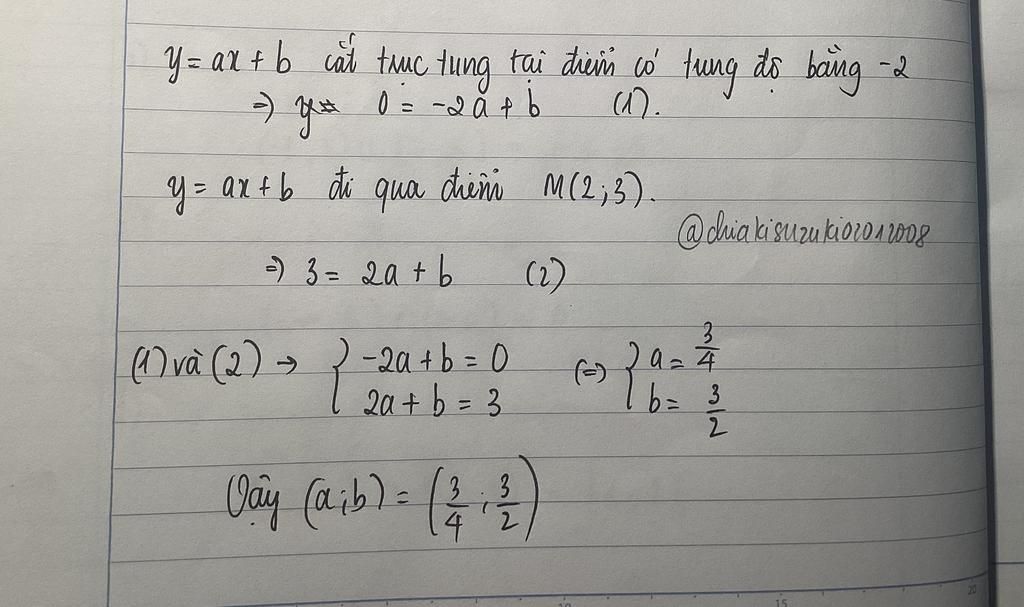 y = ax + b cắt trục tung tại điểm có tung độ bằng -2
=> y 0 = -2a + b (1).
y = ax + b đi qua điểm M(2;3).
@chiakisuzuki02012008
=> 3 = 2a + b (2)
(1) và (2) → { -2a + b = 0 (=) { a = 3/4
2a + b = 3 b = 3/2
Vậy (a;b) = (3/4 ; 3/2)
10 15 20